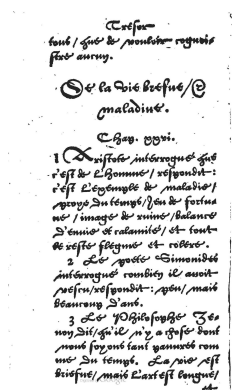 Tresor
tous / que de vouloir cognois
stre aucun.
De la vie brefue / &
maladiue.
Chap. xxvi.
1 Aristote interrogue que
c'est de L'homme / respondit :
c'est L'exemple de maladie /
proye du temps / Jeu de fortu-
ne / image de ruine / balance
d'enuie et calamité / et tout
de reste flegme et colere.
2 Le poete Simonides
interrogué combien il auoit
vescu / respondit : peu / mais
beaucoup d'ans.
3 Le Philosophe Ze-
non dit / qu'il n'y a chose dont
nous soyons tant pauures com
me du temps. La vie est
briefue / mais L'art est longue /
et